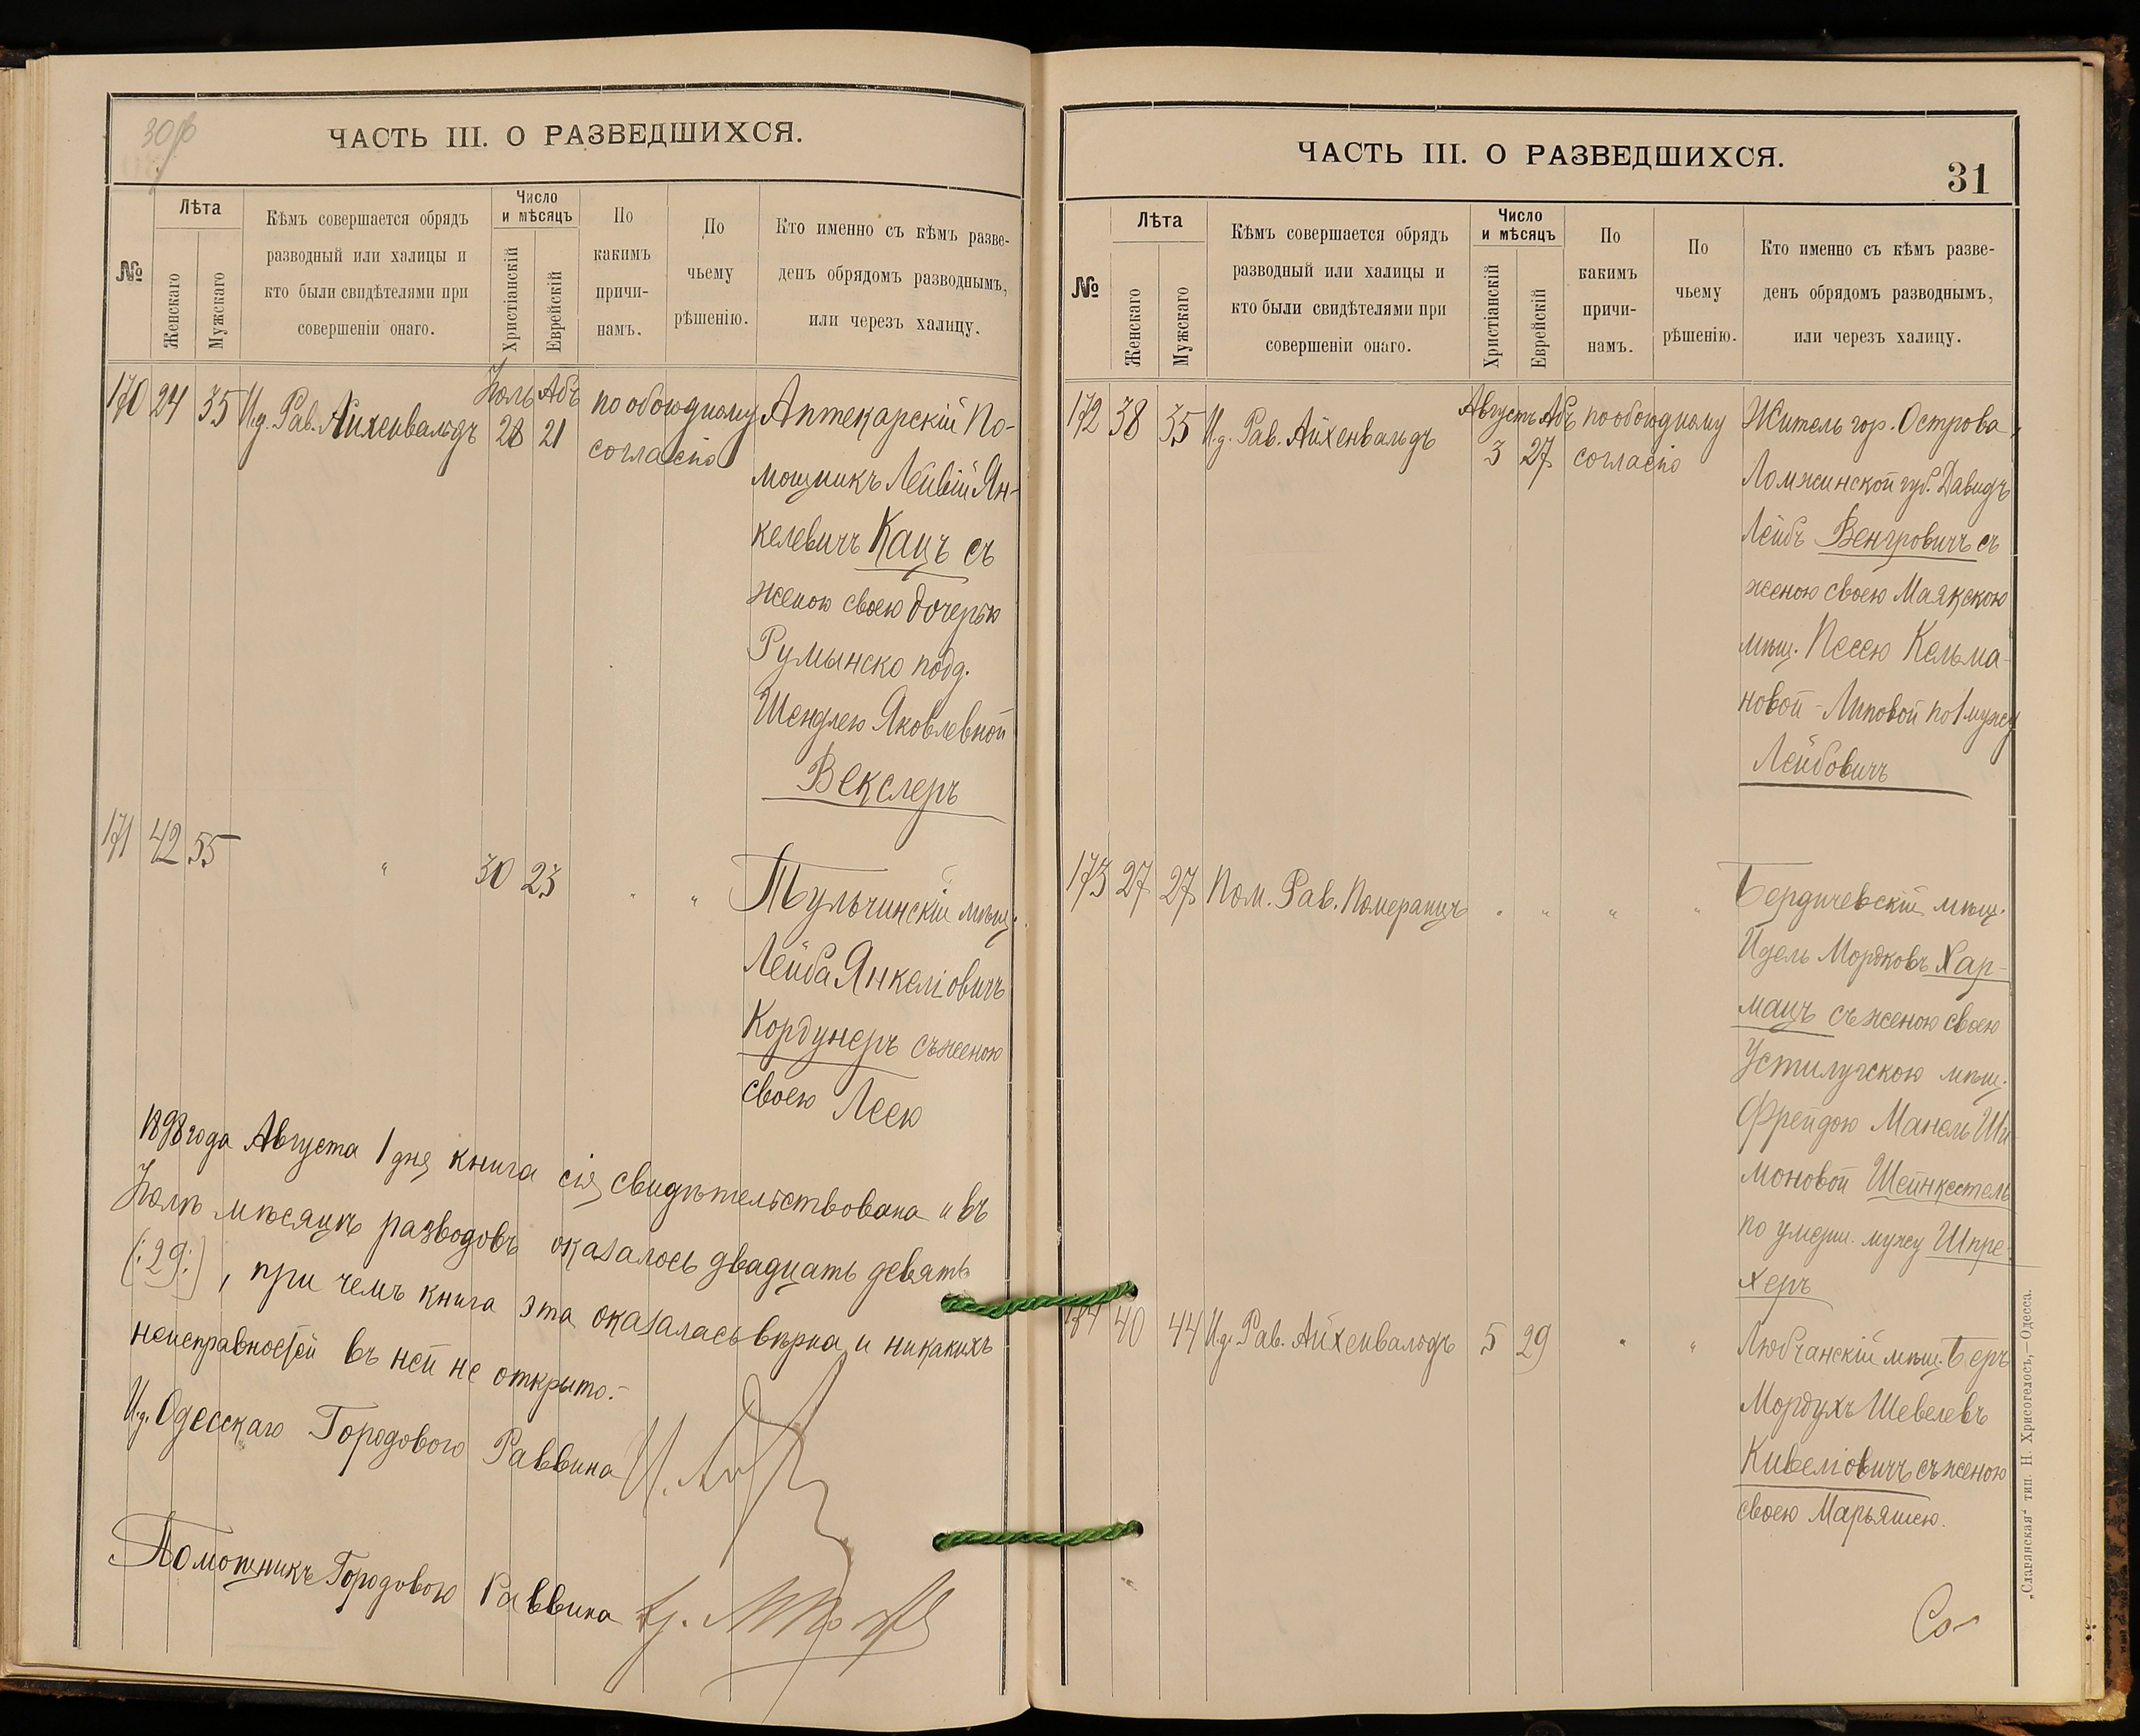 30об
ЧАСТЬ III. О РАЗВЕДШИХСЯ.
№
Лѣта
Женскаго
Мужскаго
Кѣмъ совершается обрядъ
разводный или халицы и
кто были свидѣтелями при
совершеніи онаго.
Число
и мѣсяцъ
Христіанскій
Еврейскій
По
какимъ
причи-
намъ.
По
чьему
рѣшенію.
Кто именно съ кѣмъ разве-
денъ обрядомъ разводнымъ,
или черезъ халицу.
170 24 35 И.д. Рав. Айхенвальдъ Іюль 28 Абъ 21 по обоюдному согласію Аптекарскій По-
мощникъ Лейвій Ян-
келевичъ Кацъ съ
женою своею дочерью
Румынско подд.
Шендлею Яковлевной
Векслеръ
171 42 55 " 30 23 " " Тульчинскій мѣщ.
Лейба Янкеліовичъ
Кордунеръ съ женою
своею Леею
1898 года Августа 1 дня книга сія свидѣтельствована и въ
Іюлѣ мѣсяцѣ разводовъ оказалось двадцать девять
(:29:), при чемъ книга эта оказалась вѣрна и никакихъ
неисправностей въ ней не открыто.-
И.д. Одесскаго Городового Раввина
Помощникъ Городового Раввина
ЧАСТЬ III. О РАЗВЕДШИХСЯ.
31
№
Лѣта
Женскаго
Мужскаго
Кѣмъ совершается обрядъ
разводный или халицы и
кто были свидѣтелями при
совершеніи онаго.
Число
и мѣсяцъ
Христіанскій
Еврейскій
По
какимъ
причи-
намъ.
По
чьему
рѣшенію.
Кто именно съ кѣмъ разве-
денъ обрядомъ разводнымъ,
или черезъ халицу.
172 38 35 И.д. Рав. Айхенвальдъ Августъ 3 Абъ 27 по обоюдному согласію Житель гор. Острова,
Ломжинской губ. Давидъ
Лейбъ Венгровичъ съ
женою своею Маякскою
мѣщ. Песею Кельма-
новой-Липовой по 1 мужу
Лейбовичъ
173 27 27 Пом. Рав. Померанцъ " " " " Бердичевскій мѣщ.
Идель Мордковъ Хар-
мацъ съ женою своею
Устилугскою мѣщ.
Фрейдою Манель Ши-
моновой Шейнкестель
по умерш. мужу Шпре-
херъ
174 40 44 И.д. Рав. Айхенвальдъ 5 29 " " Любчанскій мѣщ. Беръ
Мордухъ Шевелевъ
Кивеліовичъ съ женою
своею Марьяшею.
Со-
„Славянская" тип. Н. Хрисогелосъ,—Одесса.